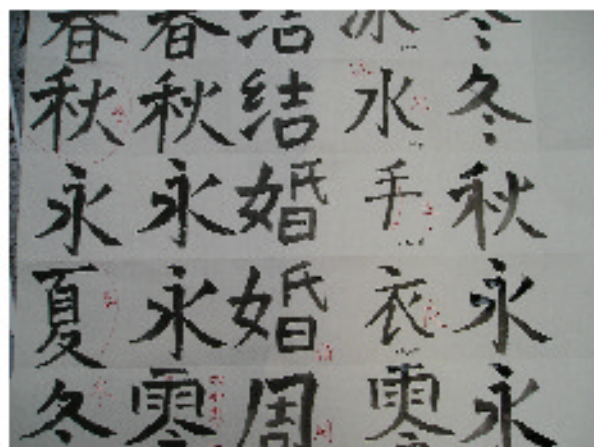 春春结冰冬
秋秋结水冬
永永婚手秋
夏永婚衣永
冬零周零永